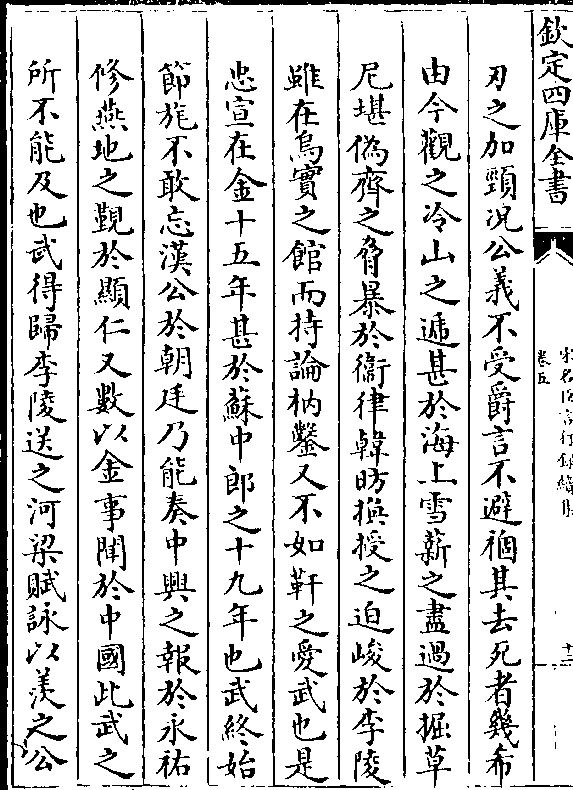 欽定四庫全書
宋名臣言行錄續集
卷五
十二
刃之加頸況公義不受爵言不避禍其去死者幾希
由今觀之冷山之遞甚於海上雪薪之盡過於掘草
尼堪偽齊之脅暴於衞律韓昉換授之迫峻於李陵
雖在烏實之館而持論枘鑿又不如靬之愛武也是
忠宣在金十五年甚於蘇中郎之十九年也武終始
節旄不敢忘漢公於朝廷乃能奏中興之報於永祐
修燕地之覲於顯仁又數以金事聞於中國此武之
所不能及也武得歸李陵送之河梁賦詠以羨之公